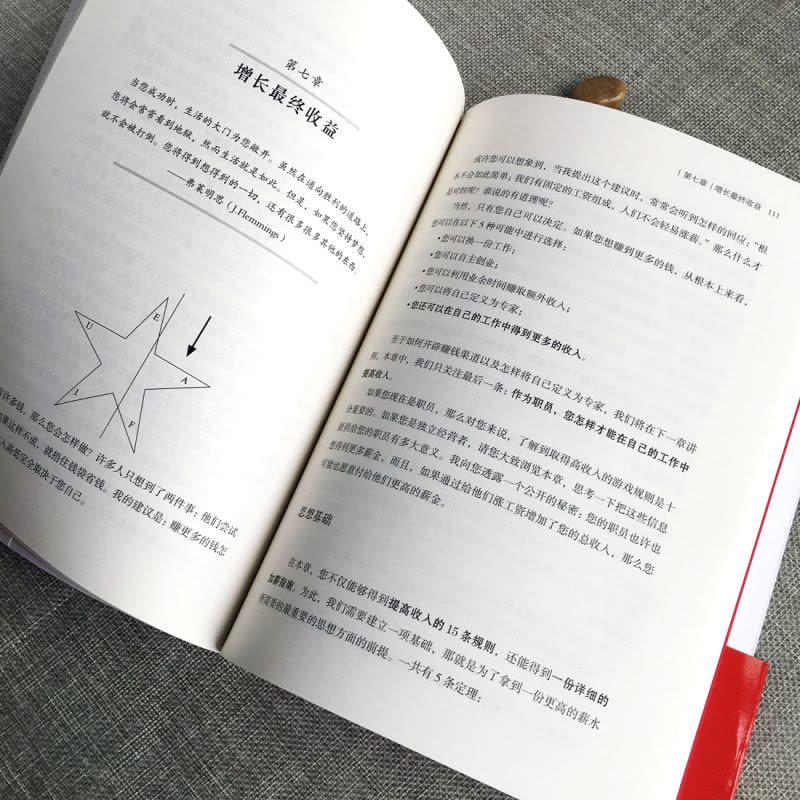 第七章
增长最终收益
当您成功时，生活的大门为您敞开。虽然在通向胜利的道路上，
您将会常常看到地狱，然而生活就是如此。但是，如果您坚持梦想，
就不会被打倒。您将得到想得到的一切，还有很多很多其他的东西。
——弗莱明思（J.Flemmings）
E
U
A
I
F
有许多钱，那么您会怎样做？许多人只想到了两件事：他们尝试
如果这样不成，就捂住钱袋省钱。我的建议是：赚更多的钱怎
入高低完全取决于您自己。
[ 第七章 | 增长最终收益 111
或许您可以想象到，当我提出这个建议时，常常会听到怎样的回应：“根
本不会如此简单；我们有固定的工资组成，人们不会轻易涨薪。”那么什么才
是对的呢？谁说的有道理呢？
当然，只有您自己可以决定。如果您想赚到更多的钱，从根本上来看，
您可以在以下5种可能中进行选择：
•您可以换一份工作；
•您可以自主创业；
•您可以利用业余时间赚取额外收入；
•您可以将自己定义为专家；
•您还可以在自己的工作中得到更多的收入。
至于如何开辟赚钱渠道以及怎样将自己定义为专家，我们将在下一章讲
到。本章中，我们只关注最后一条：作为职员，您怎样才能在自己的工作中
提高收入。
如果您现在是职员，那么对您来说，了解到取得高收入的游戏规则是十
分重要的。如果您是独立经营者，请您大致浏览本章，思考一下把这些信息
提供给您的职员有多大意义。我向您透露一个公开的秘密：您的职员也许也
想得到更多薪金，而且，如果通过给他们涨工资增加了您的总收入，那么您
可能也愿意付给他们更高的薪金。
思想基础
在本章，您不仅能够得到提高收入的15条规则，还能得到一份详细的
加薪指南。为此，我们需要建立一项基础，那就是为了拿到一份更高的薪水
所需要的最重要的思想方面的前提。一共有5条定理：